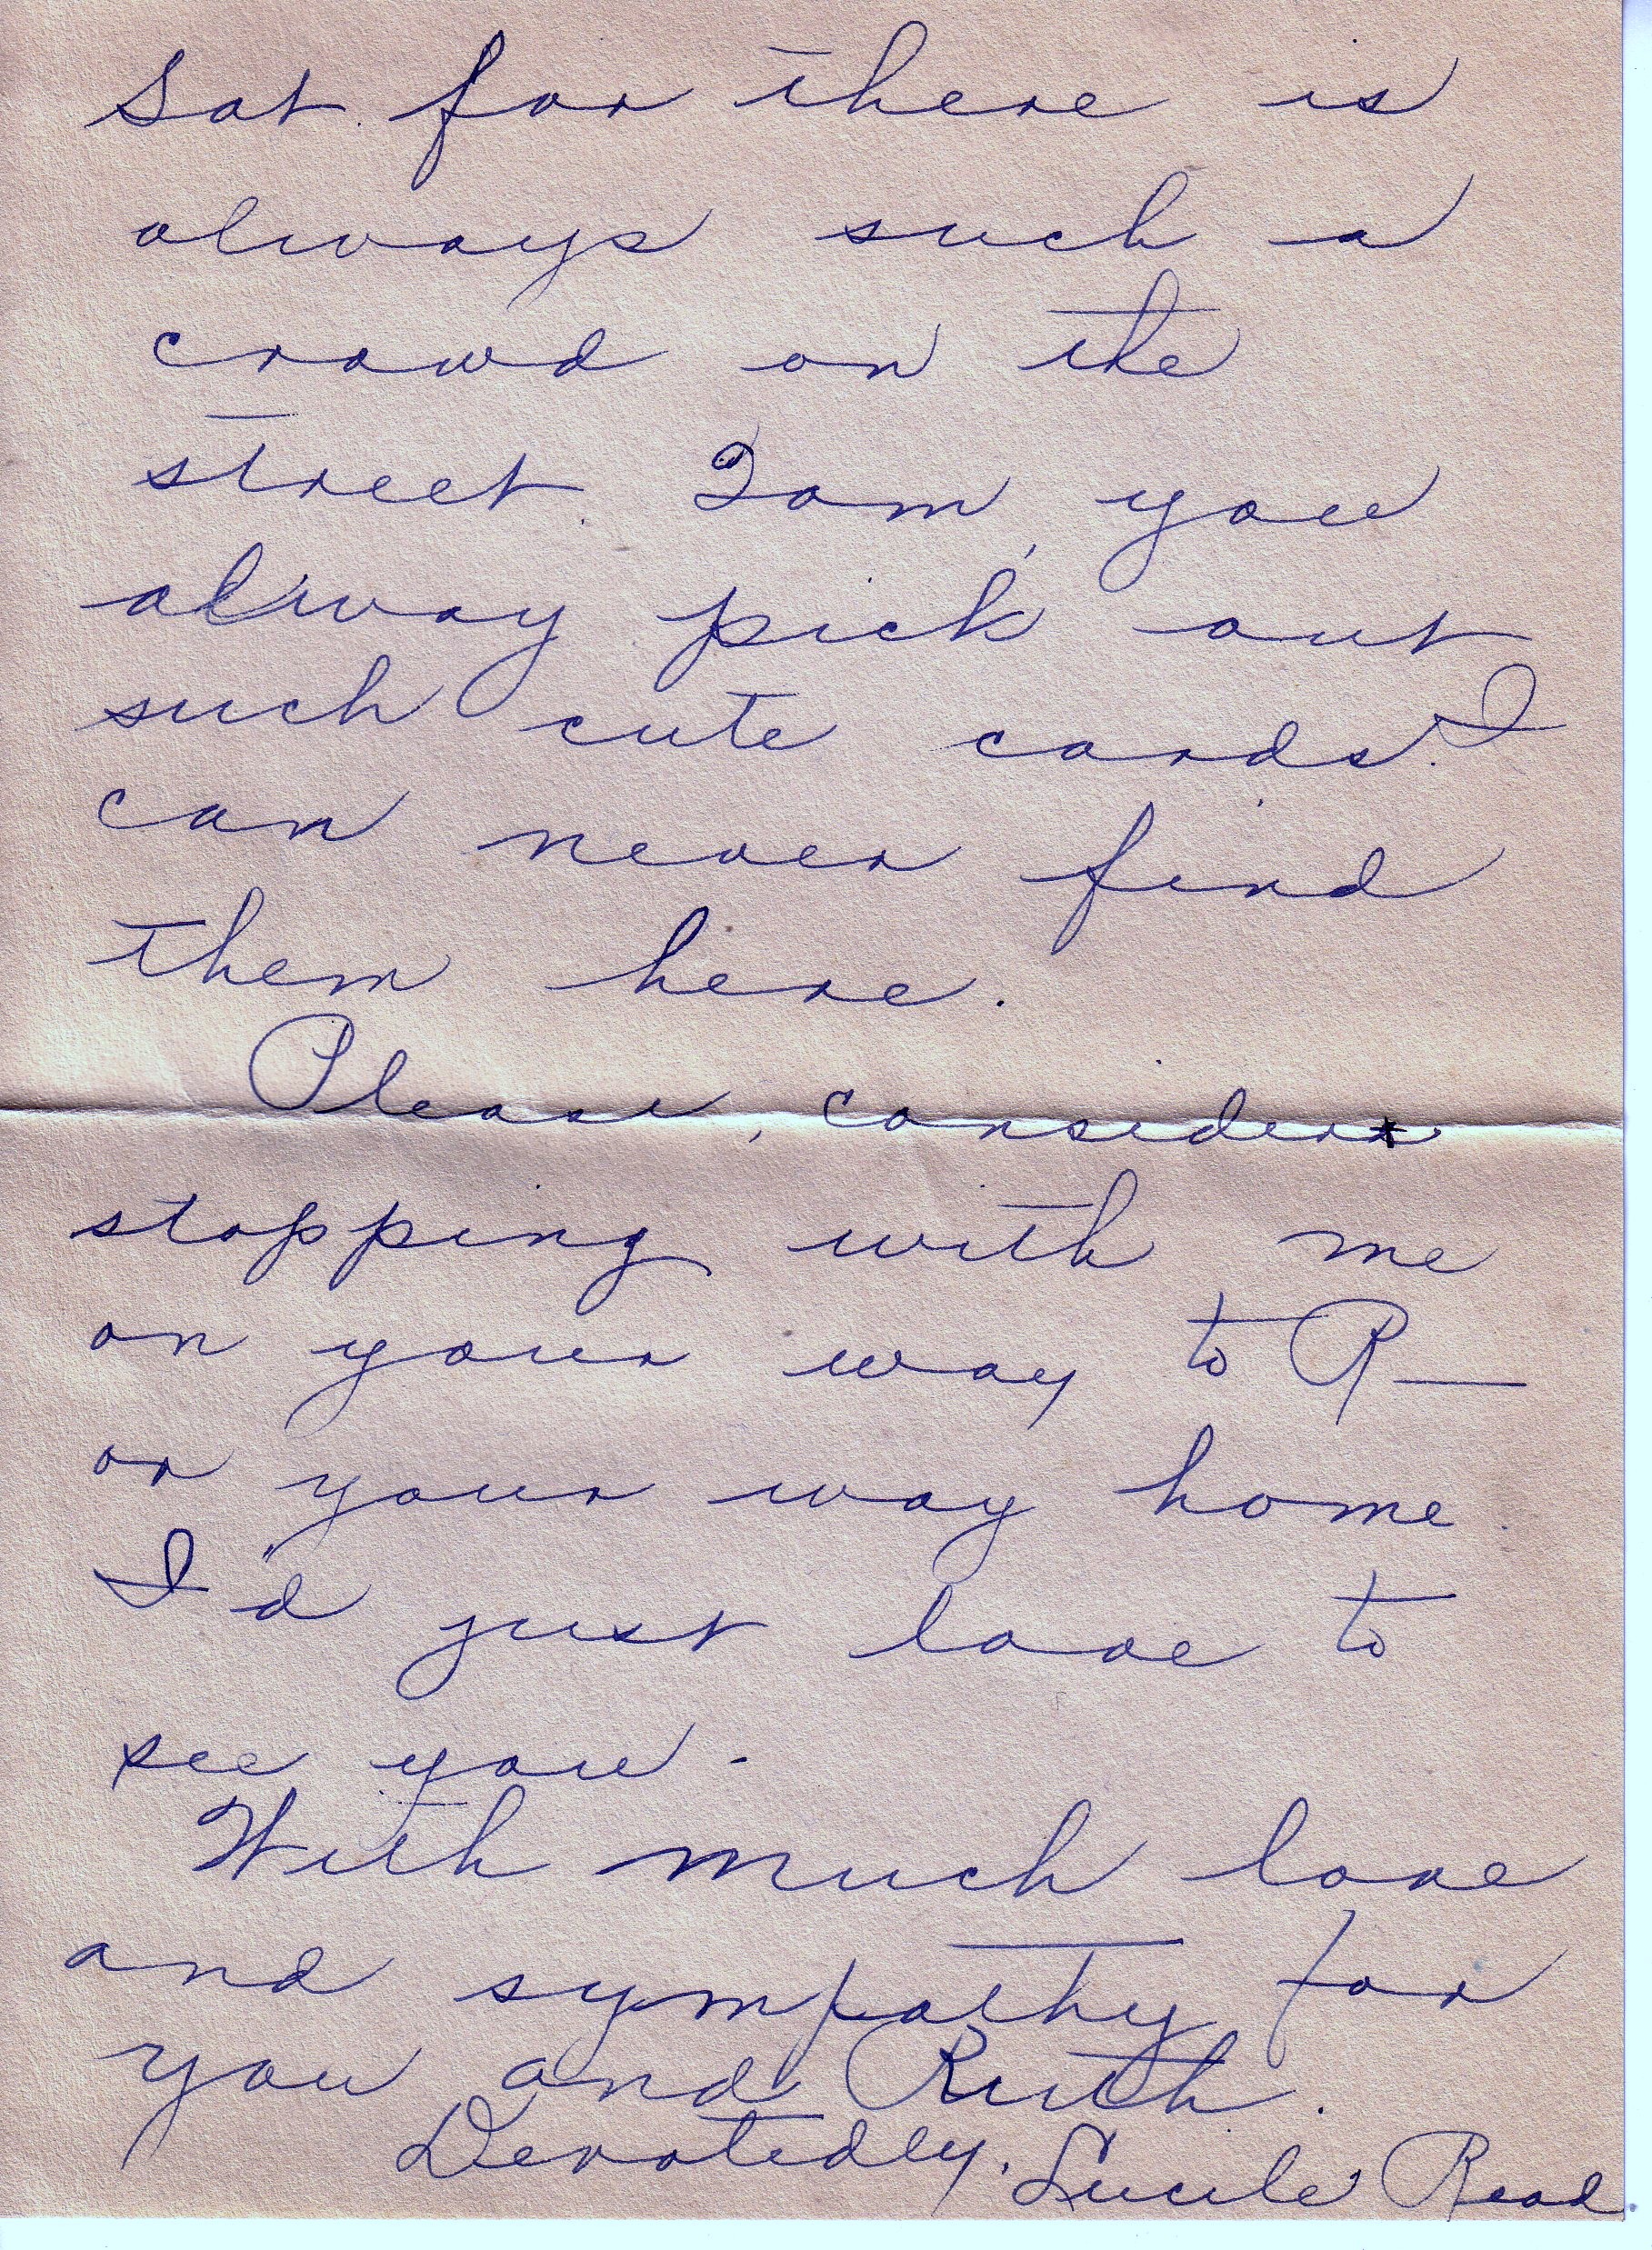 Sat. for there is
always such a
crowd on the
street. Tom, you
alway pick out
such cute cards. I
can never find
them here.
Please, consider
stopping with me
on your way to R—
or your way home.
I'd just love to
see you -
With much love
and sympathy for
you and Ruth.
Devotedly, Lucile Read